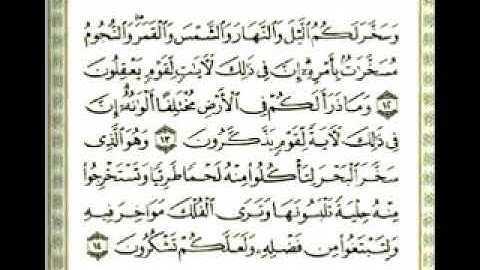 وَسَخَّرَ لَكُمُ الَّيْلَ وَالنَّهَارَ وَالشَّمْسَ وَالْقَمَرَ ۖ وَالنُّجُومُ
مُسَخَّرَٰتٌۢ بِأَمْرِهِۦٓ ۗ إِنَّ فِى ذَٰلِكَ لَأَيَٰتٍ لِّقَوْمٍ يَعْقِلُونَ
١٢ وَمَا ذَرَأَ لَكُمْ فِى الْأَرْضِ مُخْتَلِفًا أَلْوَٰنُهُۥٓ ۗ إِنَّ
فِى ذَٰلِكَ لَأَيَةً لِّقَوْمٍ يَذَّكَّرُونَ ١٣ وَهُوَ الَّذِى
سَخَّرَ الْبَحْرَ لِتَأْكُلُوا۟ مِنْهُ لَحْمًا طَرِيًّا وَتَسْتَخْرِجُوا۟
مِنْهُ حِلْيَةً تَلْبَسُونَهَا وَتَرَى الْفُلْكَ مَوَاخِرَ فِيهِ
وَلِتَبْتَغُوا۟ مِن فَضْلِهِۦ وَلَعَلَّكُمْ تَشْكُرُونَ ١٤